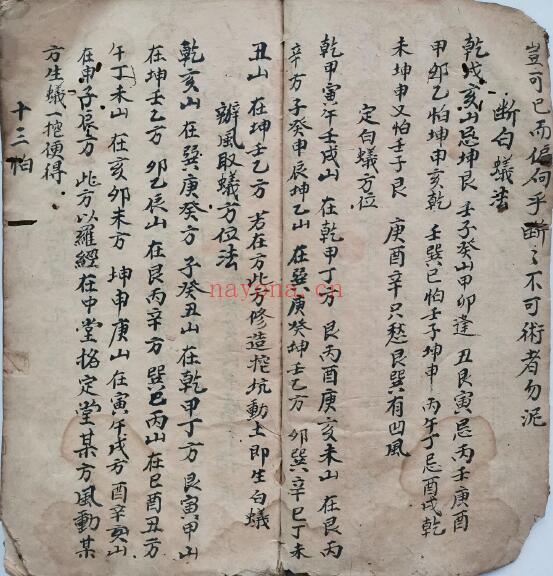 豈可已而偏向乎斷〻不可術者勿泥
断白蟻法
乾戌亥山忌坤艮 壬子癸山甲卯逢 丑艮寅忌丙壬庚酉
甲卯乙怕坤申亥乾 壬巽巳怕壬子坤申 丙午丁忌酉戌乾
未坤申又怕壬子艮 庚酉辛只愁艮巽有凹風
定白蟻方位
乾甲寅午壬戌山 在乾甲丁方 艮丙酉庚亥未山 在艮丙
辛方子癸申辰坤乙山 在巽庚癸坤壬乙方 卯巽辛巳丁未
丑山 在坤壬乙方 若在方此方修造挖坑動土即生白蟻
辦風取蟻方位法
乾亥山 在巽庚癸方 子癸丑山 在乾甲丁方 艮寅甲山
在坤壬乙方 卯乙辰山 在艮丙辛方 巽巳丙山 在巳酉丑方
午丁未山 在亥卯未方 坤申庚山 在寅午戌方 酉辛亥山
在申子辰方 此方以羅經在中堂格定堂某方風動某
方生蟻一擋便得
十三怕
nayona.cn